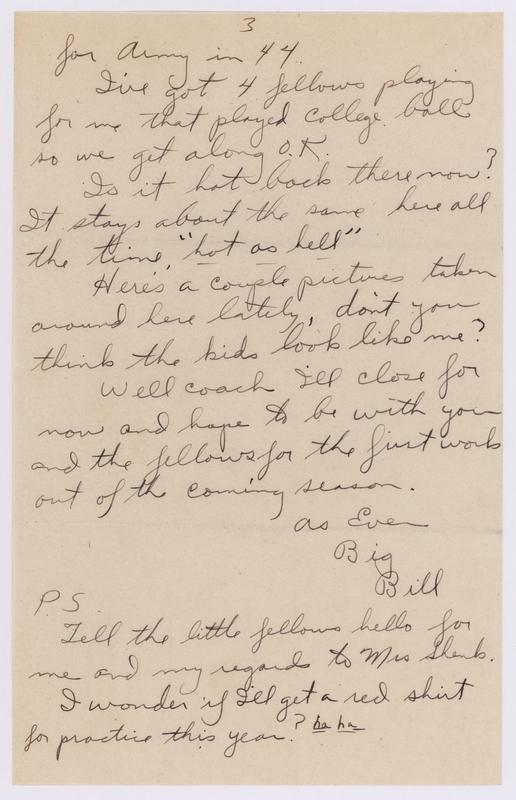 3
for Army in 44.
I've got 4 fellows playing
for me that played college ball
so we get along O.K.
Is it hot back there now?
It stays about the same here all
the time, "hot as hell"
Here's a couple pictures taken
around here lately, don't you
think the kids look like me?
Well coach I'll close for
now and hope to be with you
and the fellows for the first work
out of the coming season.
as Ever
Big
Bill
P.S.
Tell the little fellows hello for
me and my regards to Mrs Shenk.
I wonder if I'll get a red shirt
for practice this year.? ha ha